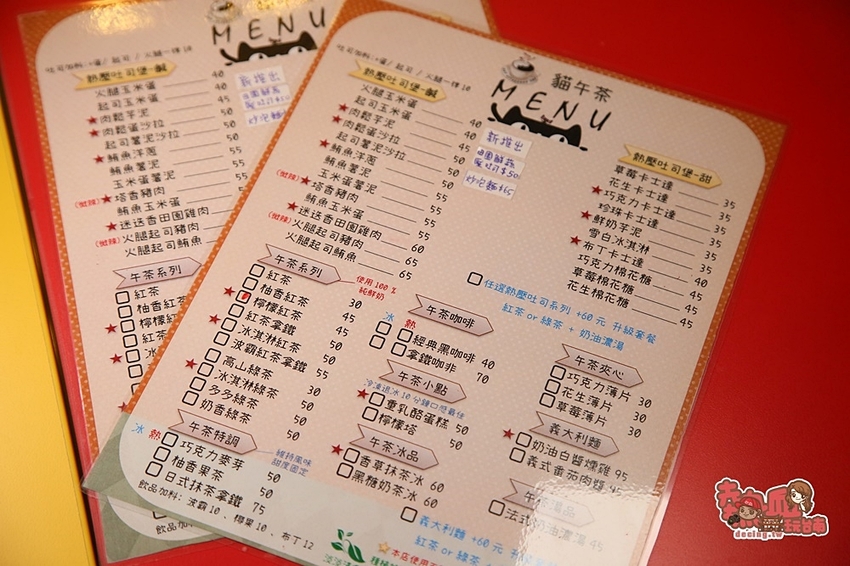 貓午茶
MENU
吐司加料:+蛋/起司/火腿一樣10
熱壓吐司堡-鹹
火腿玉米蛋 40
起司玉米蛋 40
★肉鬆芋泥 45
★肉鬆蛋沙拉 50
起司薯泥沙拉 50
★鮪魚洋蔥 50
鮪魚薯泥 55
玉米蛋薯泥 50
(微辣)★塔香豬肉 50
鮪魚玉米蛋 55
★迷迭香田園雞肉 55
(微辣)火腿起司豬肉 60
火腿起司鮪魚 65
65
新推出
田園鮮蔬
蛋吐司$50
炒泡麵$65
熱壓吐司堡-甜
草莓卡士達 35
花生卡士達 35
★巧克力卡士達 35
珍珠卡士達 35
★鮮奶芋泥 35
雪白冰淇淋 35
★布丁卡士達 45
巧克力棉花糖 45
草莓棉花糖 45
花生棉花糖 45
任選熱壓吐司系列 +60元 升級套餐
紅茶 or 綠茶 + 奶油濃湯
午茶系列
使用100%
純鮮奶
紅茶 30
★柚香紅茶 45
檸檬紅茶 45
★紅茶拿鐵 50
冰淇淋紅茶 50
波霸紅茶拿鐵 55
★高山綠茶 30
冰淇淋綠茶 50
多多綠茶 50
奶香綠茶 50
午茶特調
維持風味
甜度固定
冰 熱
★巧克力麥芽 50
柚香果茶 50
日式抹茶拿鐵 75
飲品加料: 波霸10、椰果10、布丁12
午茶咖啡
冰 熱
經典黑咖啡 40
拿鐵咖啡 70
午茶小點
冷凍退冰10分鐘口感最佳
★重乳酪蛋糕 50
檸檬塔 50
午茶冰品
★香草抹茶冰 60
黑糖奶茶冰 60
午茶夾心
巧克力薄片 30
花生薄片 30
草莓薄片 30
義大利麵
★奶油白醬燻雞 95
義式番茄肉醬 95
法式奶油濃湯 45
義大利麵 +60元
紅茶 or 綠茶
★本店使用
MENU
吐司加料:+蛋/起司/火腿一樣10
熱壓吐司堡-鹹
火腿玉米蛋 40
起司玉米蛋 40
★肉鬆芋泥 45
★肉鬆蛋沙拉 50
起司薯泥沙拉 50
★鮪魚洋蔥
鮪魚薯泥
玉米蛋薯泥
(微辣)★塔香豬肉
鮪魚玉米蛋
★迷迭香田園雞肉
(微辣)火腿起司豬肉
火腿起司鮪魚
新推出
午茶系列
紅茶
柚香紅
檸檬紅
紅茶
冰
飲品加
decing.tw